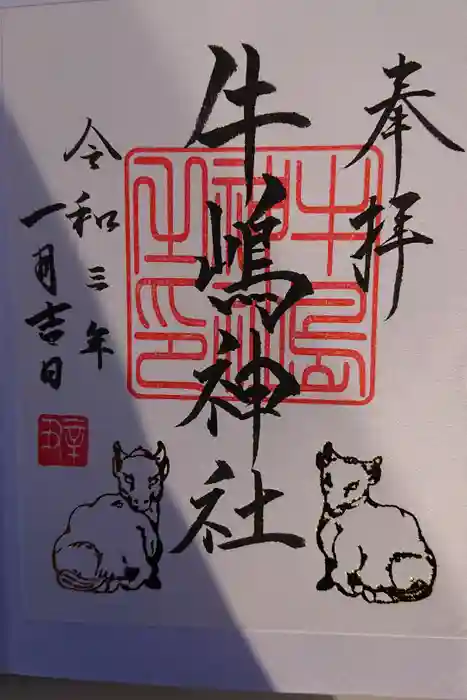 奉拝
牛嶋神社
令和三年
一月吉日
牛嶋神社之印
辛丑